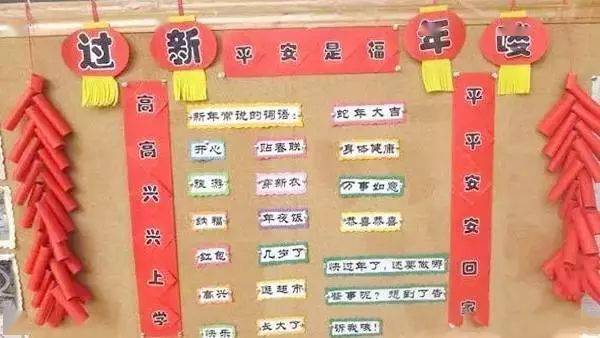 过新年喽
平安是福
高高兴兴上学
平平安安回家
新年常说的词语：
开心
贴春联
旅游
穿新衣
纳福
年夜饭
红包
几岁了
高兴
逛超市
快乐
长大了
蛇年大吉
身体健康
万事如意
恭喜恭喜
快过年了，还要做哪
些事呢？想到了告
诉我哦！